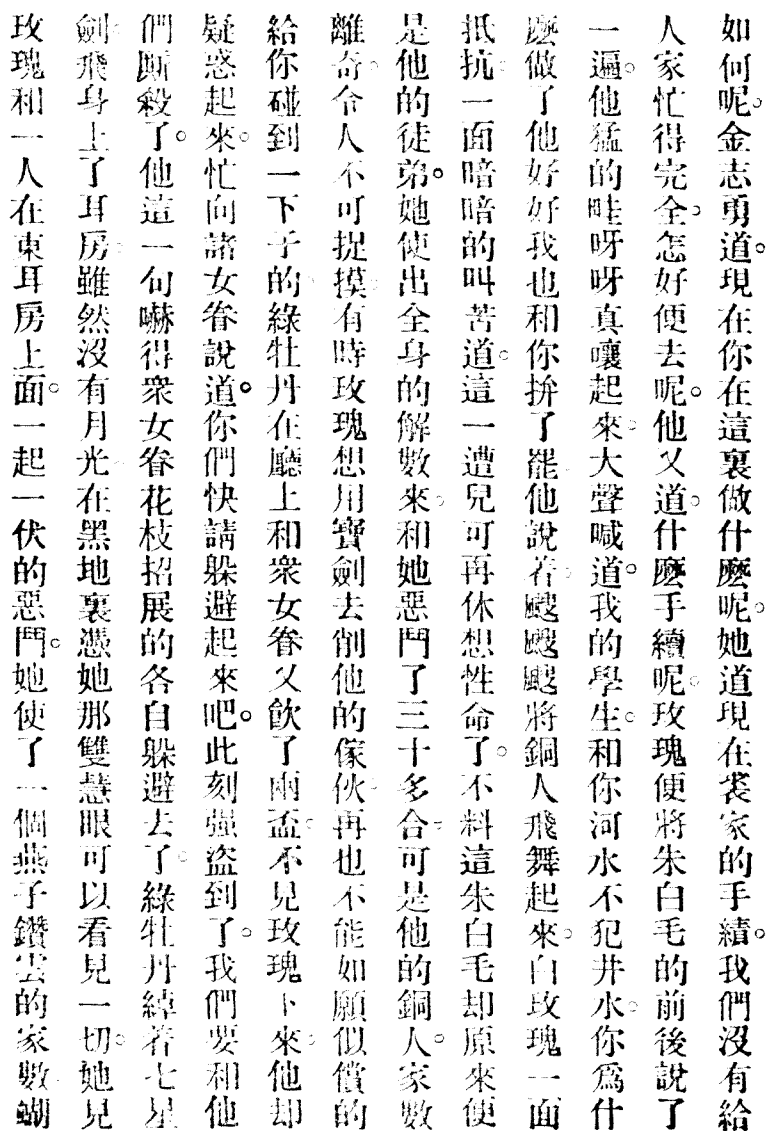 如何呢。金志勇道。現在你在這裏做什麽呢。她道現在裘家的手續。我們沒有給
人家忙得完全。怎好便去呢。他又道。什麽手續呢。玫瑰便將朱白毛的前後說了
一遍。他猛的哇呀呀真嚷起來。大聲喊道。我的學生。和你河水不犯井水。你爲什
麽做了他好好我也和你拚了罷。他說着。颼颼颼將銅人飛舞起來。白玫瑰一面
抵抗。一面暗暗的叫苦道。這一遭兒可再休想性命了。不料這朱白毛却原來便
是他的徒弟。她使出全身的解數來。和她惡鬥了三十多合。可是他的銅人。家數
離奇。令人不可捉摸。有時玫瑰想用寶劍去削他的傢伙。再也不能如願似償的
給你碰到一下子的。綠牡丹在廳上和衆女眷又飲了兩盃。不見玫瑰下來。他却
疑惑起來。忙向諸女眷說道。你們快請躱避起來吧。此刻强盜到了。我們要和他
們厮殺了。他這一句嚇得衆女眷花枝招展的各自躱避去了。綠牡丹繂着七星
劍。飛身上了耳房。雖然沒有月光。在黑地裏憑她那雙慧眼可以看見一切。她見
玫瑰和一人在東耳房上面。一起一伏的惡鬥。她使了一個燕子鑽雲的家數。蝴